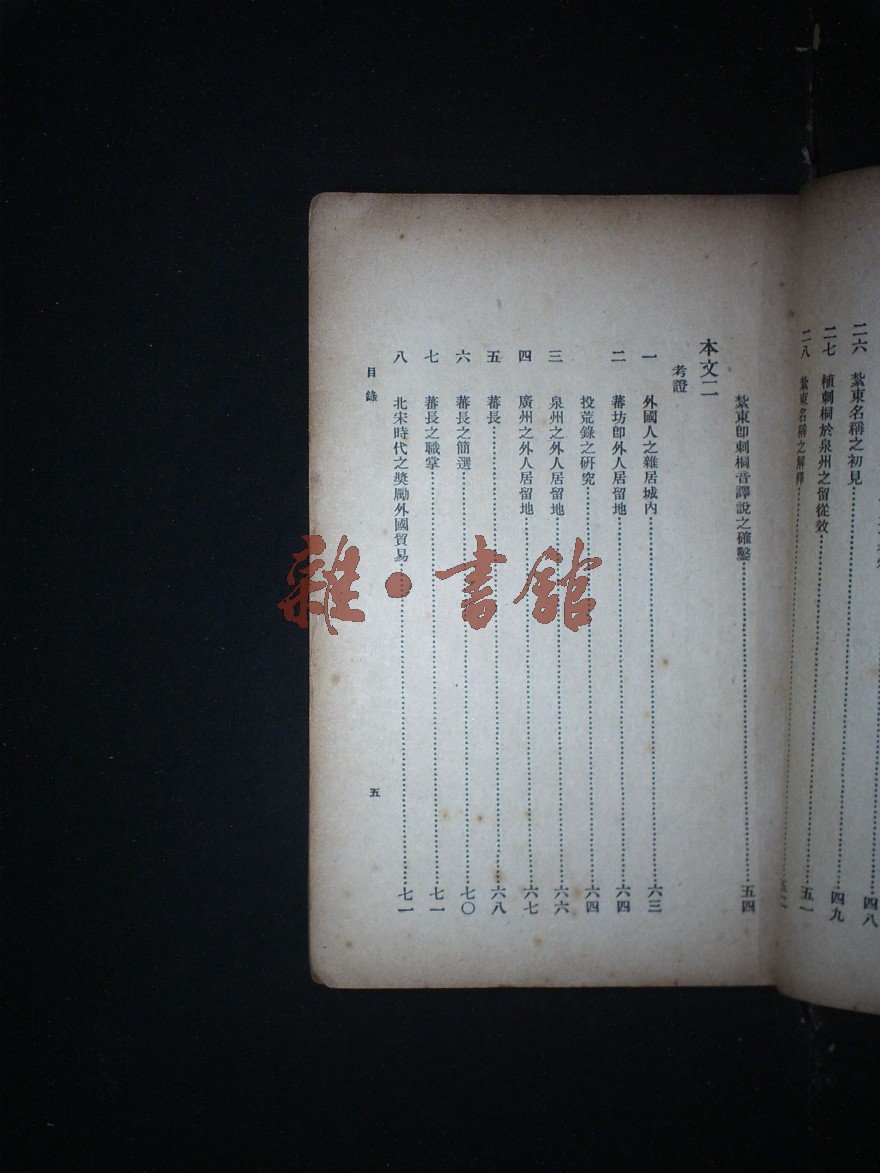 四八
二六 紮東名稱之初見……四九
二七 植刺桐於泉州之留從效……五一
二八 紮東名稱之解釋……五二
紮東卽刺桐音譯說之確鑿……五四
本文二
考證
一 外國人之雜居城內……六三
二 蕃坊卽外人居留地……六四
投荒錄之研究……六四
三 泉州之外人居留地……六六
四 廣州之外人居留地……六七
五 蕃長……六八
六 蕃長之簡選……七〇
七 蕃長之職掌……七一
八 北宋時代之獎勵外國貿易……七一
目錄
五
雜·書館